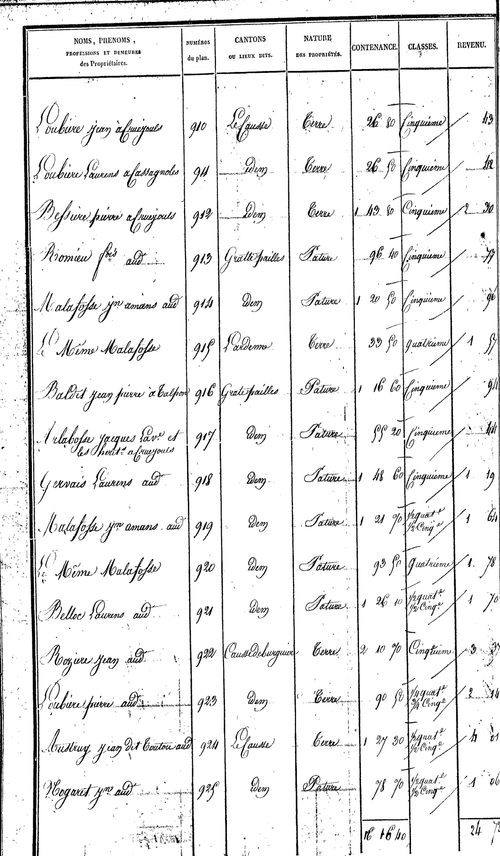 NOMS, PRENOMS, PROFESSIONS ET DEMEURES des Propriétaires. | NUMÉROS du plan. | CANTONS OU LIEUX DITS. | NATURE DES PROPRIÉTÉS. | CONTENANCE. | CLASSES. | REVENU.
Loubiere jean à Cruejouls 910 Le Causse Terre 26 80 Cinquième 43
Loubiere Laurens a Cassagnoles 911 idem Terre 26 50 Cinquième 42
Bessiere pierre a Cruejouls 912 idem Terre 1 43 80 Cinquième 2 30
Romieu fçois aud 913 Gratte pailles Pature 96 40 Cinquième 77
Malafosse jn amans aud 914 idem Pature 1 20 50 Cinquième 96
Le Même Malafosse 915 Lardenne Terre 39 50 quatrième 1 57
Baldit jean pierre à Talpan 916 Grate pailles Pature 1 16 60 Cinquième 94
jacques et
les a Cruejouls 917 idem Pature 55 20 Cinquième 44
Gervais Laurens aud 918 idem Pature 1 48 60 Cinquième 1 19
Malafosse jn amans aud 919 idem Pature 1 21 70 ½ quat.e ½ Cinq.e 1 64
Le Même Malafosse 920 idem Pature 93 50 Quatrième 1 78
Belloc Laurens aud 921 idem Pature 1 26 10 ½ quat.e ½ Cinq.e 1 70
Rozure jean aud 922 Terre 2 10 70 Cinquième 3 37
Loubiere pierre aud 923 idem Terre 90 50 ½ quat.e ½ Cinq.e 2 14
Austruy jean dit Toutou aud 924 Le Causse Terre 1 27 30 ½ quat.e ½ Cinq.e 4 01
Nogaret jn aud 925 idem Pature 78 70 ½ quat.e ½ Cinq.e 1 06
16 16 40 24